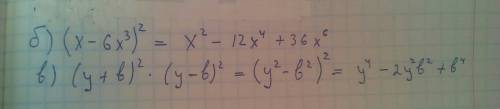 б) (x - 6x³)² = x² - 12x⁴ + 36x⁶
в) (y + b)² · (y - b)² = (y² - b²)² = y⁴ - 2y²b² + b⁴